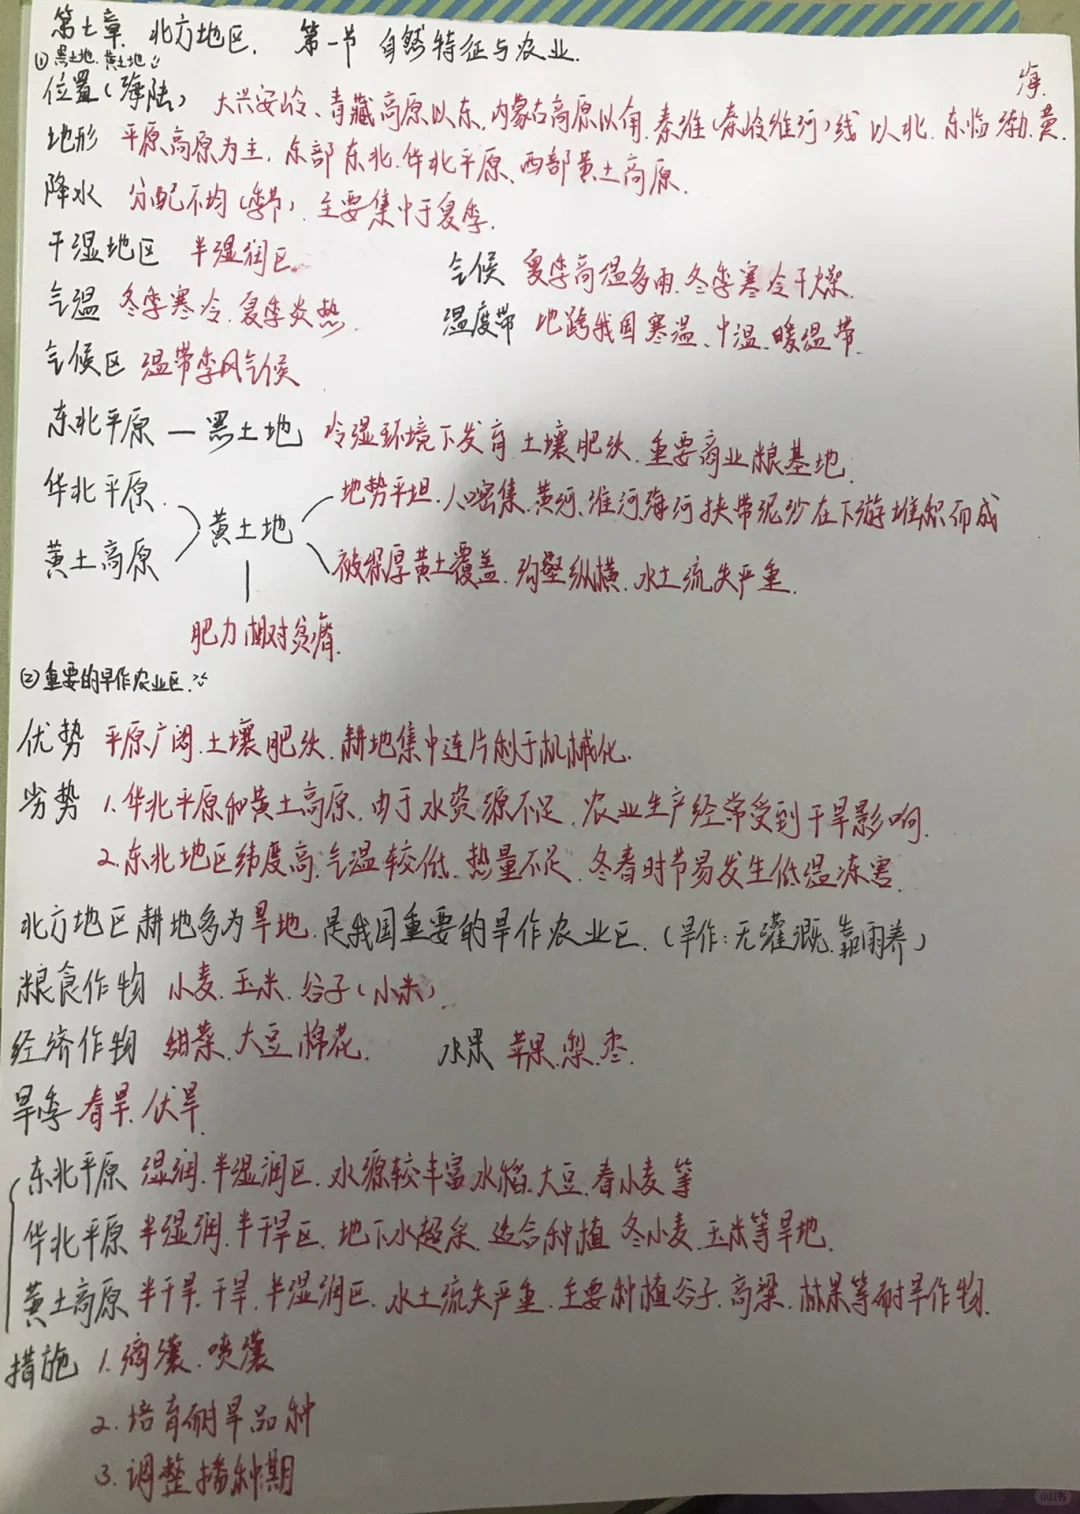 第七章 北方地区. 第一节 自然特征与农业.
①黑土地.黄土地
位置(海陆) 大兴安岭、青藏高原以东,内蒙古高原以南.秦淮(秦岭淮河)线 以北.东临渤.黄.海.
地形 平原高原为主,东部东北.华北平原、西部黄土高原.
降水 分配不均(季节).主要集中于夏季.
干湿地区 半湿润区.
气候 夏季高温多雨.冬季寒冷干燥.
气温 冬季寒冷.夏季炎热.
温度带 地跨我国寒温、中温、暖温带.
气候区 温带季风气候
东北平原 — 黑土地 冷湿环境下发育.土壤肥沃.重要商业粮基地.
华北平原
黄土高原
黄土地
地势平坦.人口密集.黄河、淮河.海河挟带泥沙在下游堆积而成
被深厚黄土覆盖.沟壑纵横.水土流失严重.
肥力相对贫瘠.
②重要的旱作农业区.
优势 平原广阔.土壤肥沃.耕地集中连片利于机械化.
劣势 1.华北平原和黄土高原.由于水资源不足.农业生产经常受到干旱影响.
2.东北地区纬度高.气温较低.热量不足.冬春时节易发生低温冻害.
北方地区耕地多为旱地.是我国重要的旱作农业区.(旱作:无灌溉.靠雨养)
粮食作物 小麦.玉米.谷子(小米).
经济作物 甜菜.大豆.棉花. 水果 苹果.梨.枣.
旱季 春旱.伏旱.
东北平原 湿润.半湿润区.水源较丰富水稻.大豆.春小麦等
华北平原 半湿润.半干旱区.地下水超采.适合种植 冬小麦.玉米等旱地.
黄土高原 半干旱.干旱.半湿润区.水土流失严重.主要种植谷子.高粱.林果等耐旱作物.
措施 1.滴灌.喷灌
2.培育耐旱品种
3.调整播种期
小红书